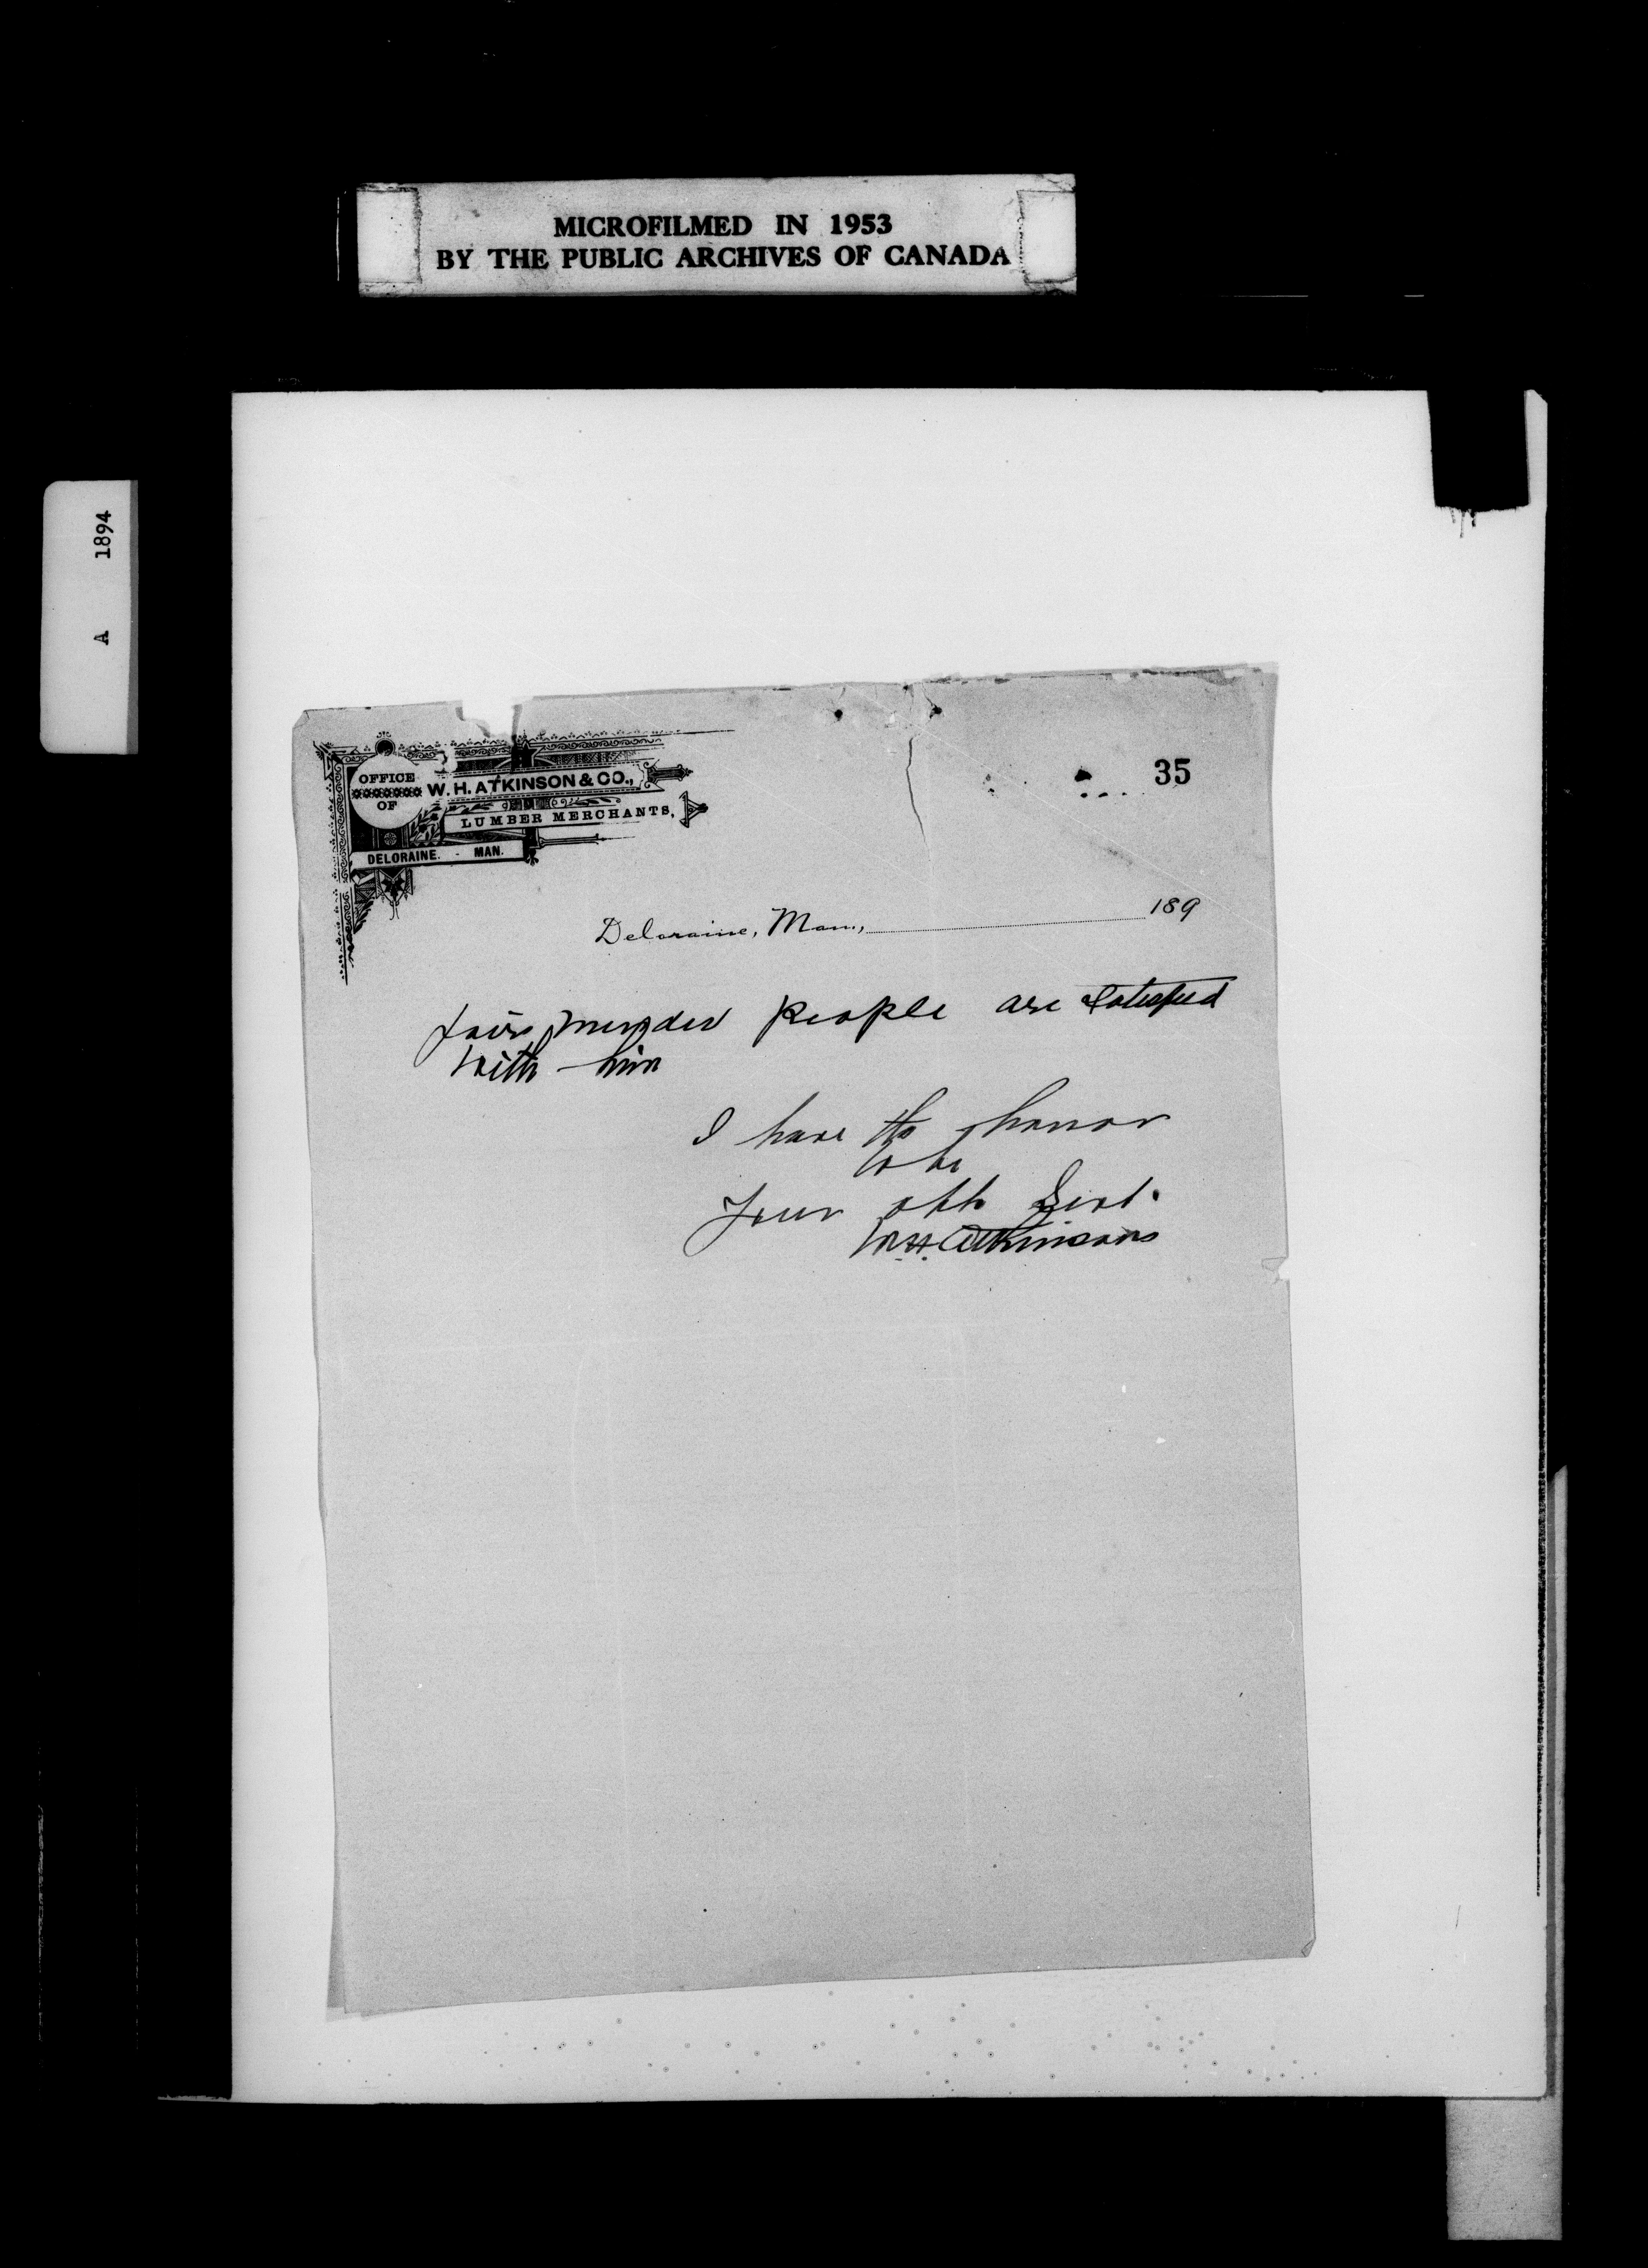 MICROFILMED IN 1953
BY THE PUBLIC ARCHIVES OF CANADA
A 1894
35
OFFICE
OF
W. H. ATKINSON & CO.,
LUMBER MERCHANTS,
DELORAINE. - MAN.
Deloraine, Man., 189
fair minded people are satisfied
with him
I have the honor
to be
Your obt Servt.
W H Atkinson